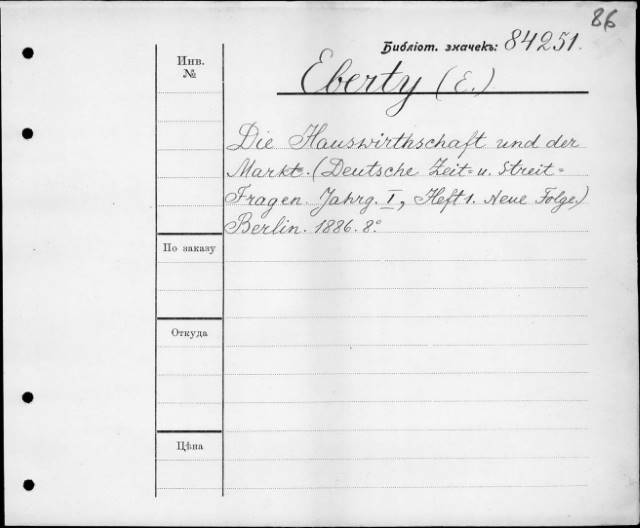 86
Библіот. значекъ: 84251.
Инв.
№
Eberty (E.)
Die Hauswirthschaft und der
Markt. (Deutsche Zeit= u. Streit=
Fragen. Jahrg. I, Heft 1. Neue Folge.)
Berlin. 1886. 8°
По заказу
Откуда
Цѣна